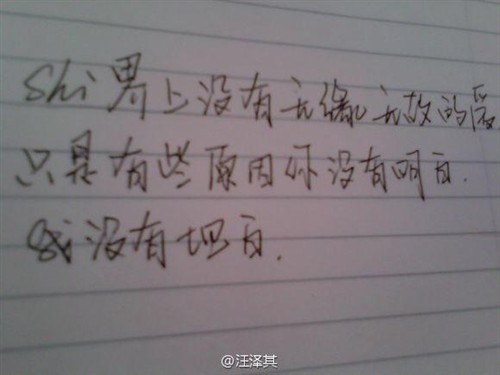 Shi界上没有无缘无故的爱
只是有些原因你没有明白.
我没有坦白.
@汪泽其